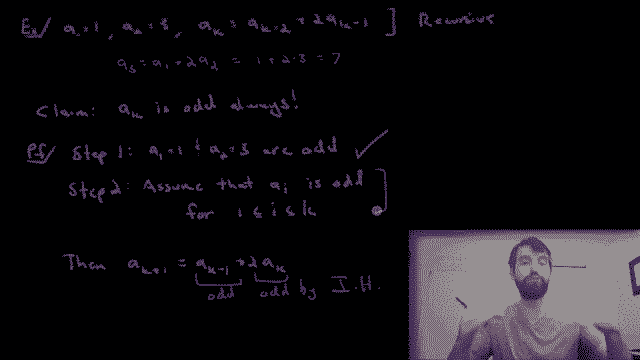 Ex/ a₁=1, a₂=3, aₖ = aₖ₋₂ + 2aₖ₋₁ ] Recursive
a₃ = a₁ + 2a₂ = 1 + 2·3 = 7
Claim: aₖ is odd always!
Pf/ Step 1: a₁=1 & a₂=3 are odd ✓
Step 2: Assume that aᵢ is odd
for 1 ≤ i ≤ k
Then aₖ₊₁ = aₖ₋₁ + 2aₖ
odd odd by I.H.